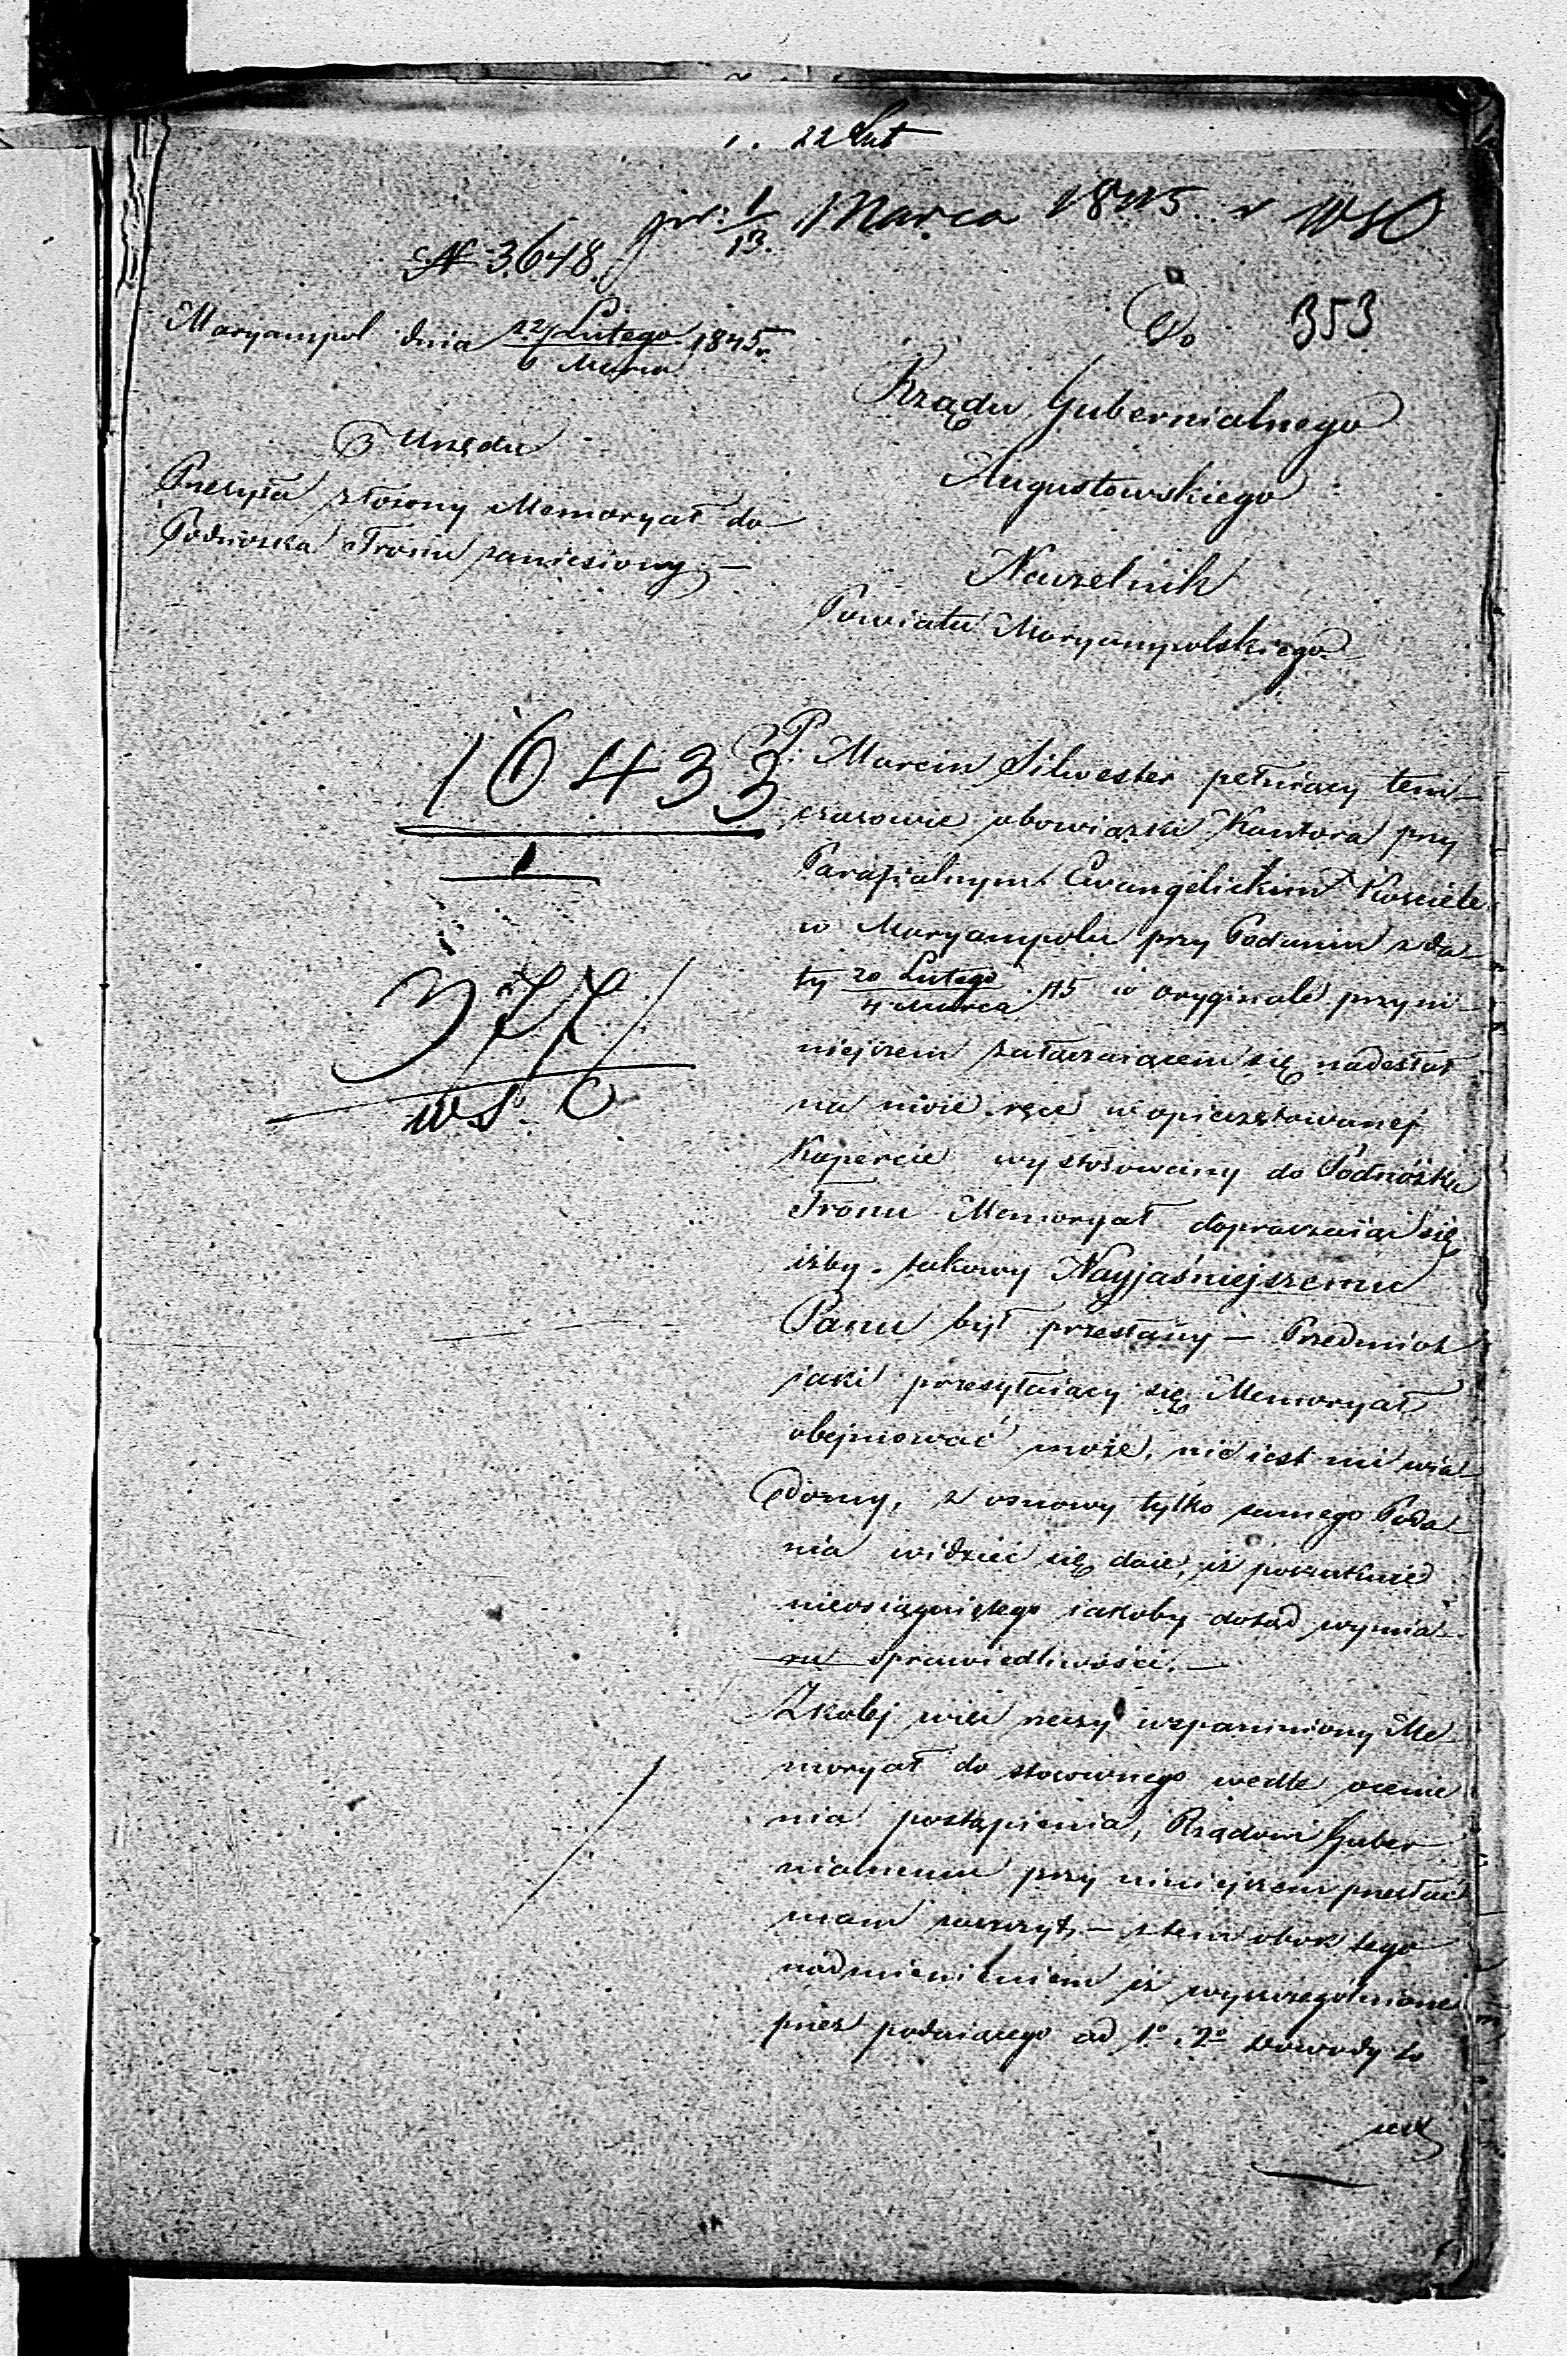 22 Lut
pr: 1/13. Marca 1845. r WSO
N 3648.
353
Maryampol dnia 22 Lutego/6 Marca 1845 r.
Do
Rządu Gubernialnego
Augustowskiego
Z Urzędu
Przesyła złożony Memoryał do
Podnóżka Tronu zaniesiony. —
Naczelnik
Powiatu Maryampolskiego
16433
1
377
WSO
P. Marcin Silwester pełniący tem-
czasowie obowiązki Kantora przy
Parafialnym Ewangelickim Kościele
w Maryampolu przy Podaniu z da-
ty 20 Lutego/4 Marca 45 w oryginale przy ni-
niejszem załączaiącem się nadesłał
na moie ręce w opieczętowanej
Kopercie wystósowany do Podnóżka
Tronu Memoryał dopraszaiąc się
iżby takowy Nayjaśniejszemu
Panu był przesłany — Przedmiot
jaki przesyłaiący się Memoryał
obejmować może, nie iest mi wia-
domy, z osnowy tylko samego Poda-
nia widzieć się daie, iż poszukuie
nieosiągniętego iakoby dotąd wymia-
ru sprawiedliwości. —
Z kolej więc rzeczy wspomniony Me-
moryał do stosownego wedle ocenie
nia postąpienia, Rządowi Guber
nialnemu przy niniejszem przesłać
mam zaszczyt, — z tem obok tego
nadmienieniem iż wyszczególnione
przez podaiącego ad 1º i 2º dowody to